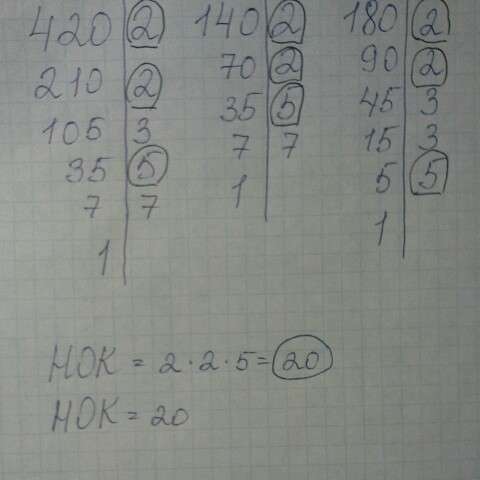 420 | 2 140 | 2 180 | 2
210 | 2 70 | 2 90 | 2
105 | 3 35 | 5 45 | 3
35 | 5 7 | 7 15 | 3
7 | 7 1 | 5 | 5
1 | 1 |
НОК = 2·2·5=20
НОК = 20